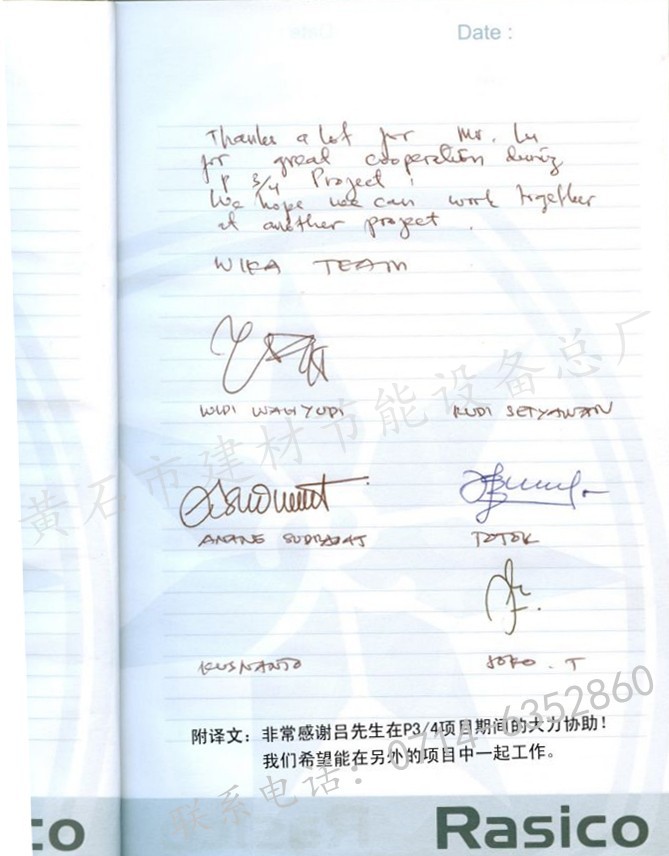 Date :
Thanks a lot for Mr. Lu
for great cooperation during
P 3/4 Project.
We hope we can work together
at another project.
WIKA TEAM
WIDI WAHYUDI
RUDI SETYAWAN
ANANG SUDRAJAT
TOTOK
KUSNANTO
JOKO . T
附译文：非常感谢吕先生在P3/4项目期间的大力协助！
我们希望能在另外的项目中一起工作。
黄石市建材节能设备总厂
联系电话：0714-6352860
co
Rasico